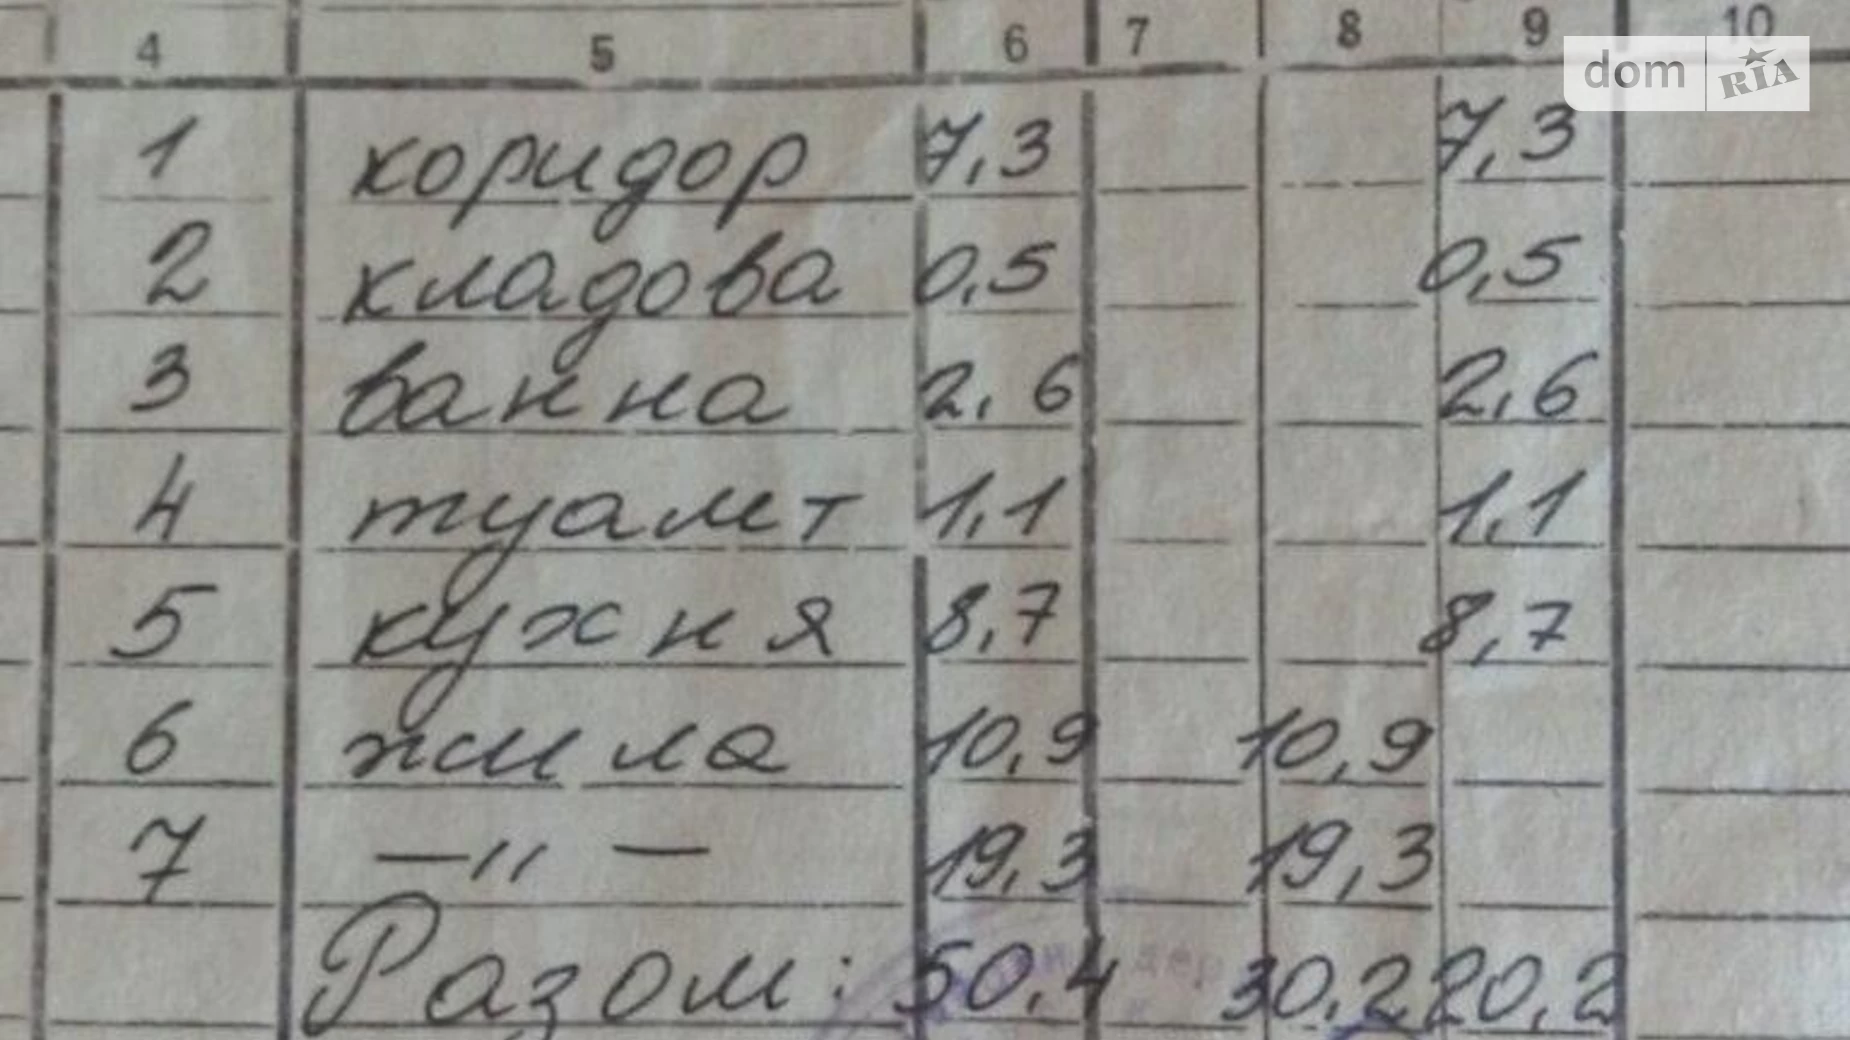 4 5 6 7 8 9 10
dom RIA
1 коридор 7,3 7,3
2 кладова 0,5 0,5
3 ванна 2,6 2,6
4 туалет 1,1 1,1
5 кухня 8,7 8,7
6 жила 10,9 10,9
7 —〃— 19,3 19,3
Разом: 50,4 30,2 20,2